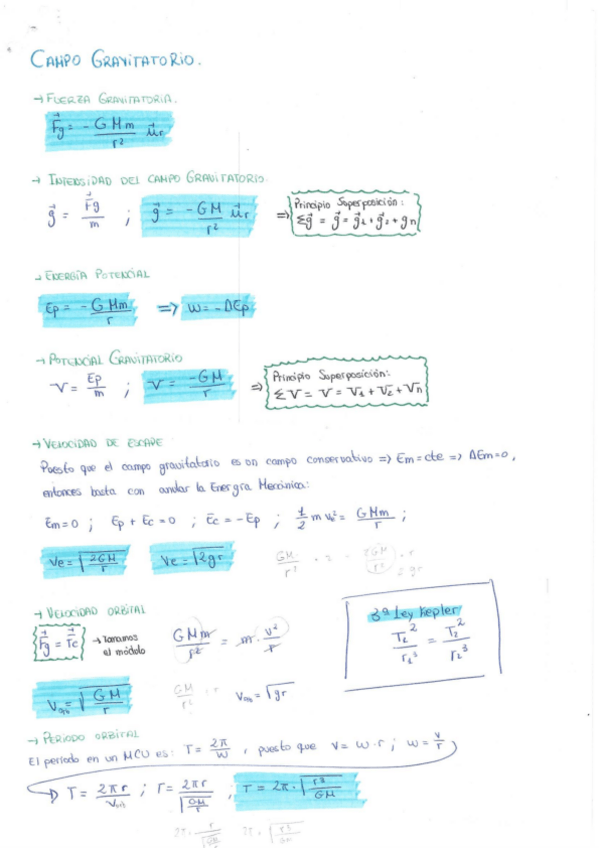 CAMPO GRAVITATORIO.
→ FUERZA GRAVITATORIA.
F⃗g = - GMm/r² u⃗r
→ INTENSIDAD DEL CAMPO GRAVITATORIO.
g⃗ = F⃗g/m ; g⃗ = -GM/r² u⃗r ⇒ Principio Superposición:
Σg⃗ = g⃗ = g⃗₁ + g⃗₂ + gn
→ ENERGÍA POTENCIAL
Ep = - GMm/r ⇒ W = - ΔEp
→ POTENCIAL GRAVITATORIO
V = Ep/m ; V = -GM/r ⇒ Principio Superposición:
ΣV = V = V₁ + V₂ + Vn
→ VELOCIDAD DE ESCAPE
Puesto que el campo gravitatorio es un campo conservativo ⇒ Em = cte ⇒ ΔEm = 0,
entonces basta con anular la Energía Mecánica:
Em = 0 ; Ep + Ec = 0 ; Ec = - Ep ; 1/2 m ve² = GMm/r ;
Ve = √(2GM/r) Ve = √(2gr)
→ VELOCIDAD ORBITAL
F⃗g = F⃗c → Tomamos el módulo GMm/r² = m · v²/r
3ª Ley Kepler
T₁²/r₁³ = T₂²/r₂³
Vorb = √(GM/r) GM/r² · r Vorb = √gr
→ PERIODO ORBITAL
El periodo en un MCU es: T = 2π/w , puesto que v = w · r ; w = v/r
T = 2πr/Vorb ; T = 2πr/√(GM/r) ; T = 2π · √(r³/GM)